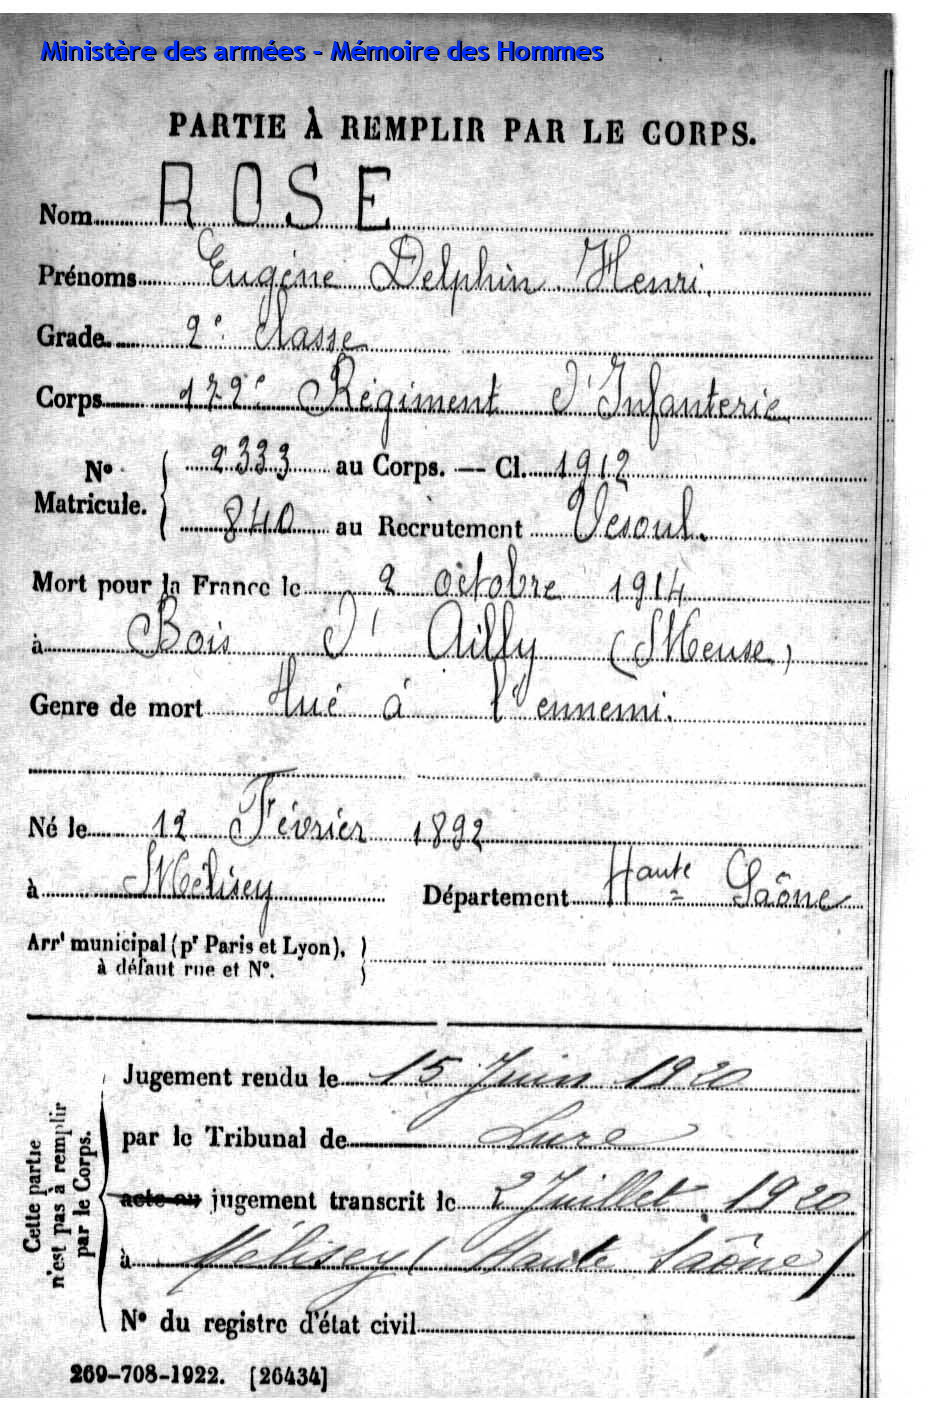 Ministère des armées - Mémoire des Hommes
PARTIE À REMPLIR PAR LE CORPS.
Nom ROSE
Prénoms Eugène Delphin Henri.
Grade 2e Classe
Corps 172e Régiment d'Infanterie
N° Matricule. { 2333 au Corps. — Cl. 1912
840 au Recrutement Vesoul.
Mort pour la France le 2 octobre 1914
à Bois d'Ailly (Meuse)
Genre de mort Tué à l'ennemi.
Né le 12 Février 1892
à Mélisey Département Haute Saône
Arrt municipal (pr Paris et Lyon), }
à défaut rue et N°.
Cette partie n'est pas à remplir par le Corps.
Jugement rendu le 15 Juin 1920
par le Tribunal de Lure
acte ou jugement transcrit le 2 Juillet 1920
à Mélisey (Haute Saône)
N° du registre d'état civil
269-708-1922. [26434]